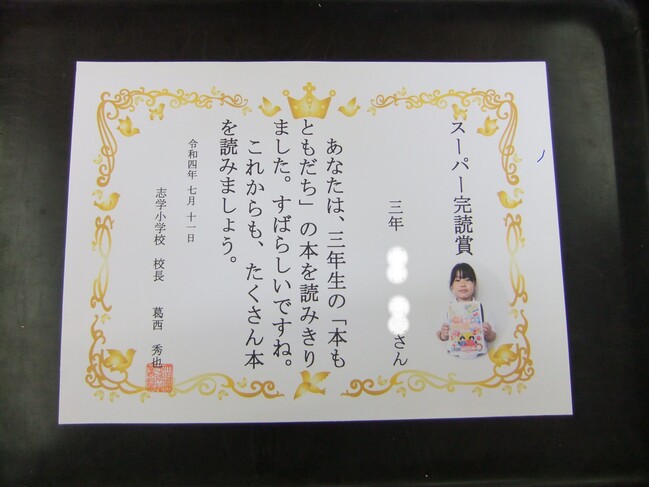 スーパー完読賞
三年 さん
あなたは、三年生の「本も
ともだち」の本を読みきり
ました。すばらしいですね。
これからも、たくさん本
を読みましょう。
令和四年 七月 十一日
志学小学校 校長 葛西 秀也